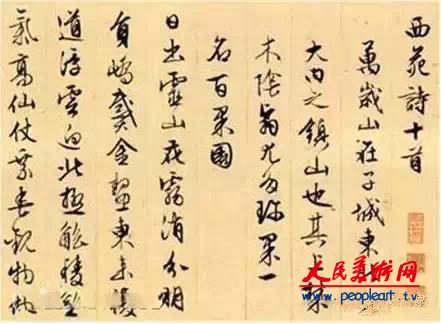 西苑詩十首
萬歲山在子城東
大内之鎮山也其上林
木陰翳尤多珍果一
名百果園
日出靈山花霧消分明
員嶠戴金鰲東來複
道浮雲迥北極觚稜王
氣高仙仗乘春觀物化
人民美术网
www.peopleart.tv